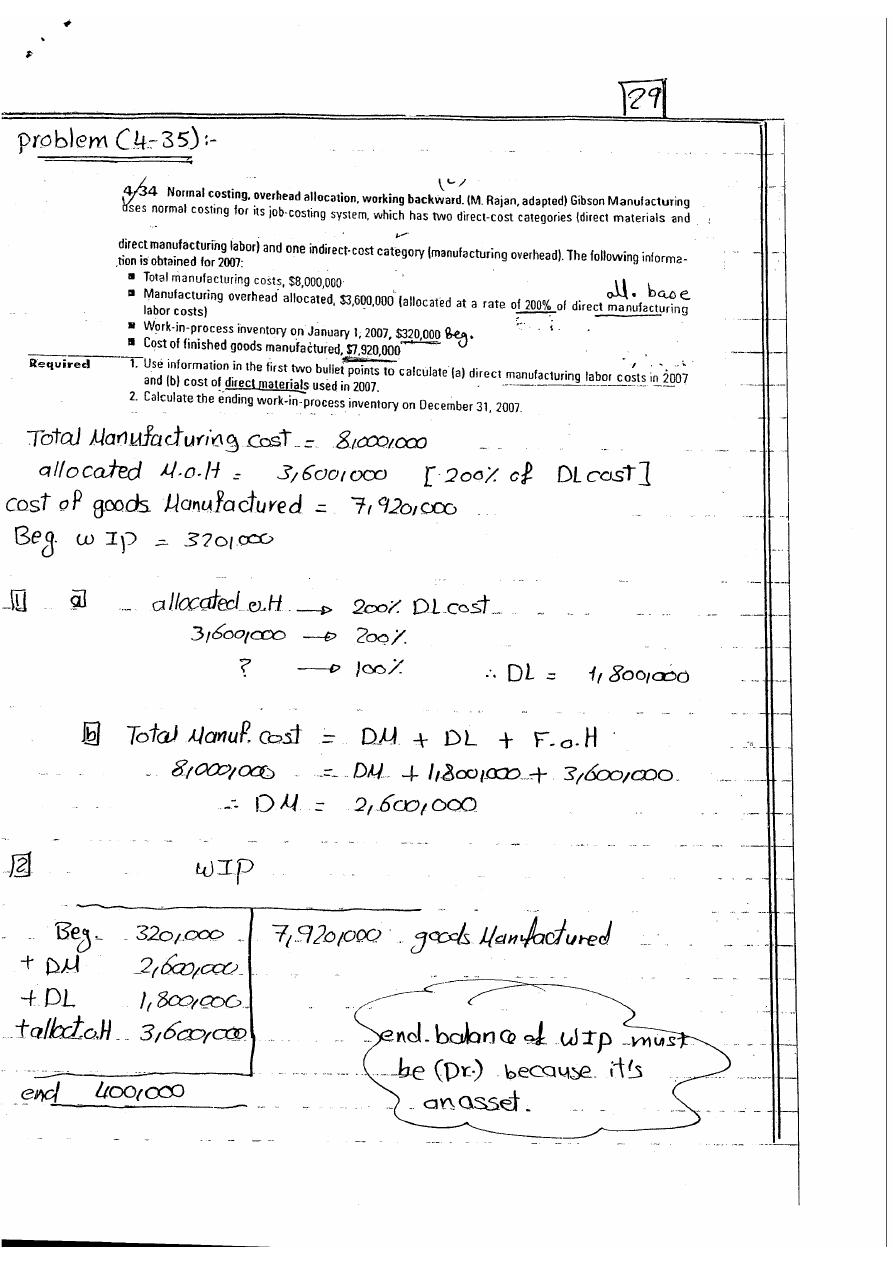 29
problem (4-35):-
4/34 Normal costing, overhead allocation, working backward. (M. Rajan, adapted) Gibson Manufacturing
uses normal costing for its job-costing system, which has two direct-cost categories (direct materials and
direct manufacturing labor) and one indirect-cost category (manufacturing overhead). The following informa-
tion is obtained for 2007:
■ Total manufacturing costs, $8,000,000
all. base
■ Manufacturing overhead allocated, $3,600,000 (allocated at a rate of 200% of direct manufacturing
labor costs)
■ Work-in-process inventory on January 1, 2007, $320,000 Beg.
■ Cost of finished goods manufactured, $7,920,000
Required 1. Use information in the first two bullet points to calculate (a) direct manufacturing labor costs in 2007
and (b) cost of direct materials used in 2007.
2. Calculate the ending work-in-process inventory on December 31, 2007.
Total Manufacturing cost = 8,000,000
allocated M.o.H = 3,600,000 [200% of DL cost]
cost of goods Manufactured = 7,920,000
Beg. WIP = 320,000
1 a allocated o.H → 200% DL cost
3,600,000 → 200%
? → 100% ∴ DL = 1,800,000
b Total Manuf. cost = DM + DL + F.o.H
8,000,000 = DM + 1,800,000 + 3,600,000
∴ DM = 2,600,000
2 WIP
Beg. 320,000 7,920,000 goods Manfactured
+ DM 2,600,000
+ DL 1,800,000
+ alloct o.H 3,600,000
end. balance of WIP must
be (Dr.) because it's
an asset.
end 400,000